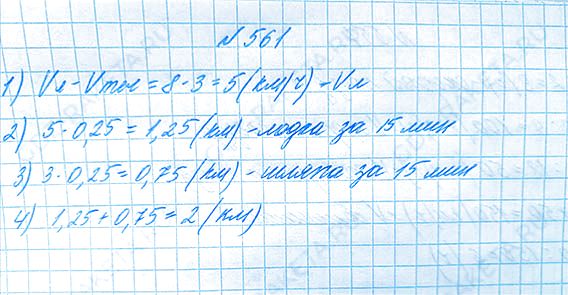 № 561
1) Vл - Vтеч = 8 - 3 = 5 (км/ч) - Vл
2) 5 · 0,25 = 1,25 (км) - лодка за 15 мин
3) 3 · 0,25 = 0,75 (км) - шляпа за 15 мин
4) 1,25 + 0,75 = 2 (км)